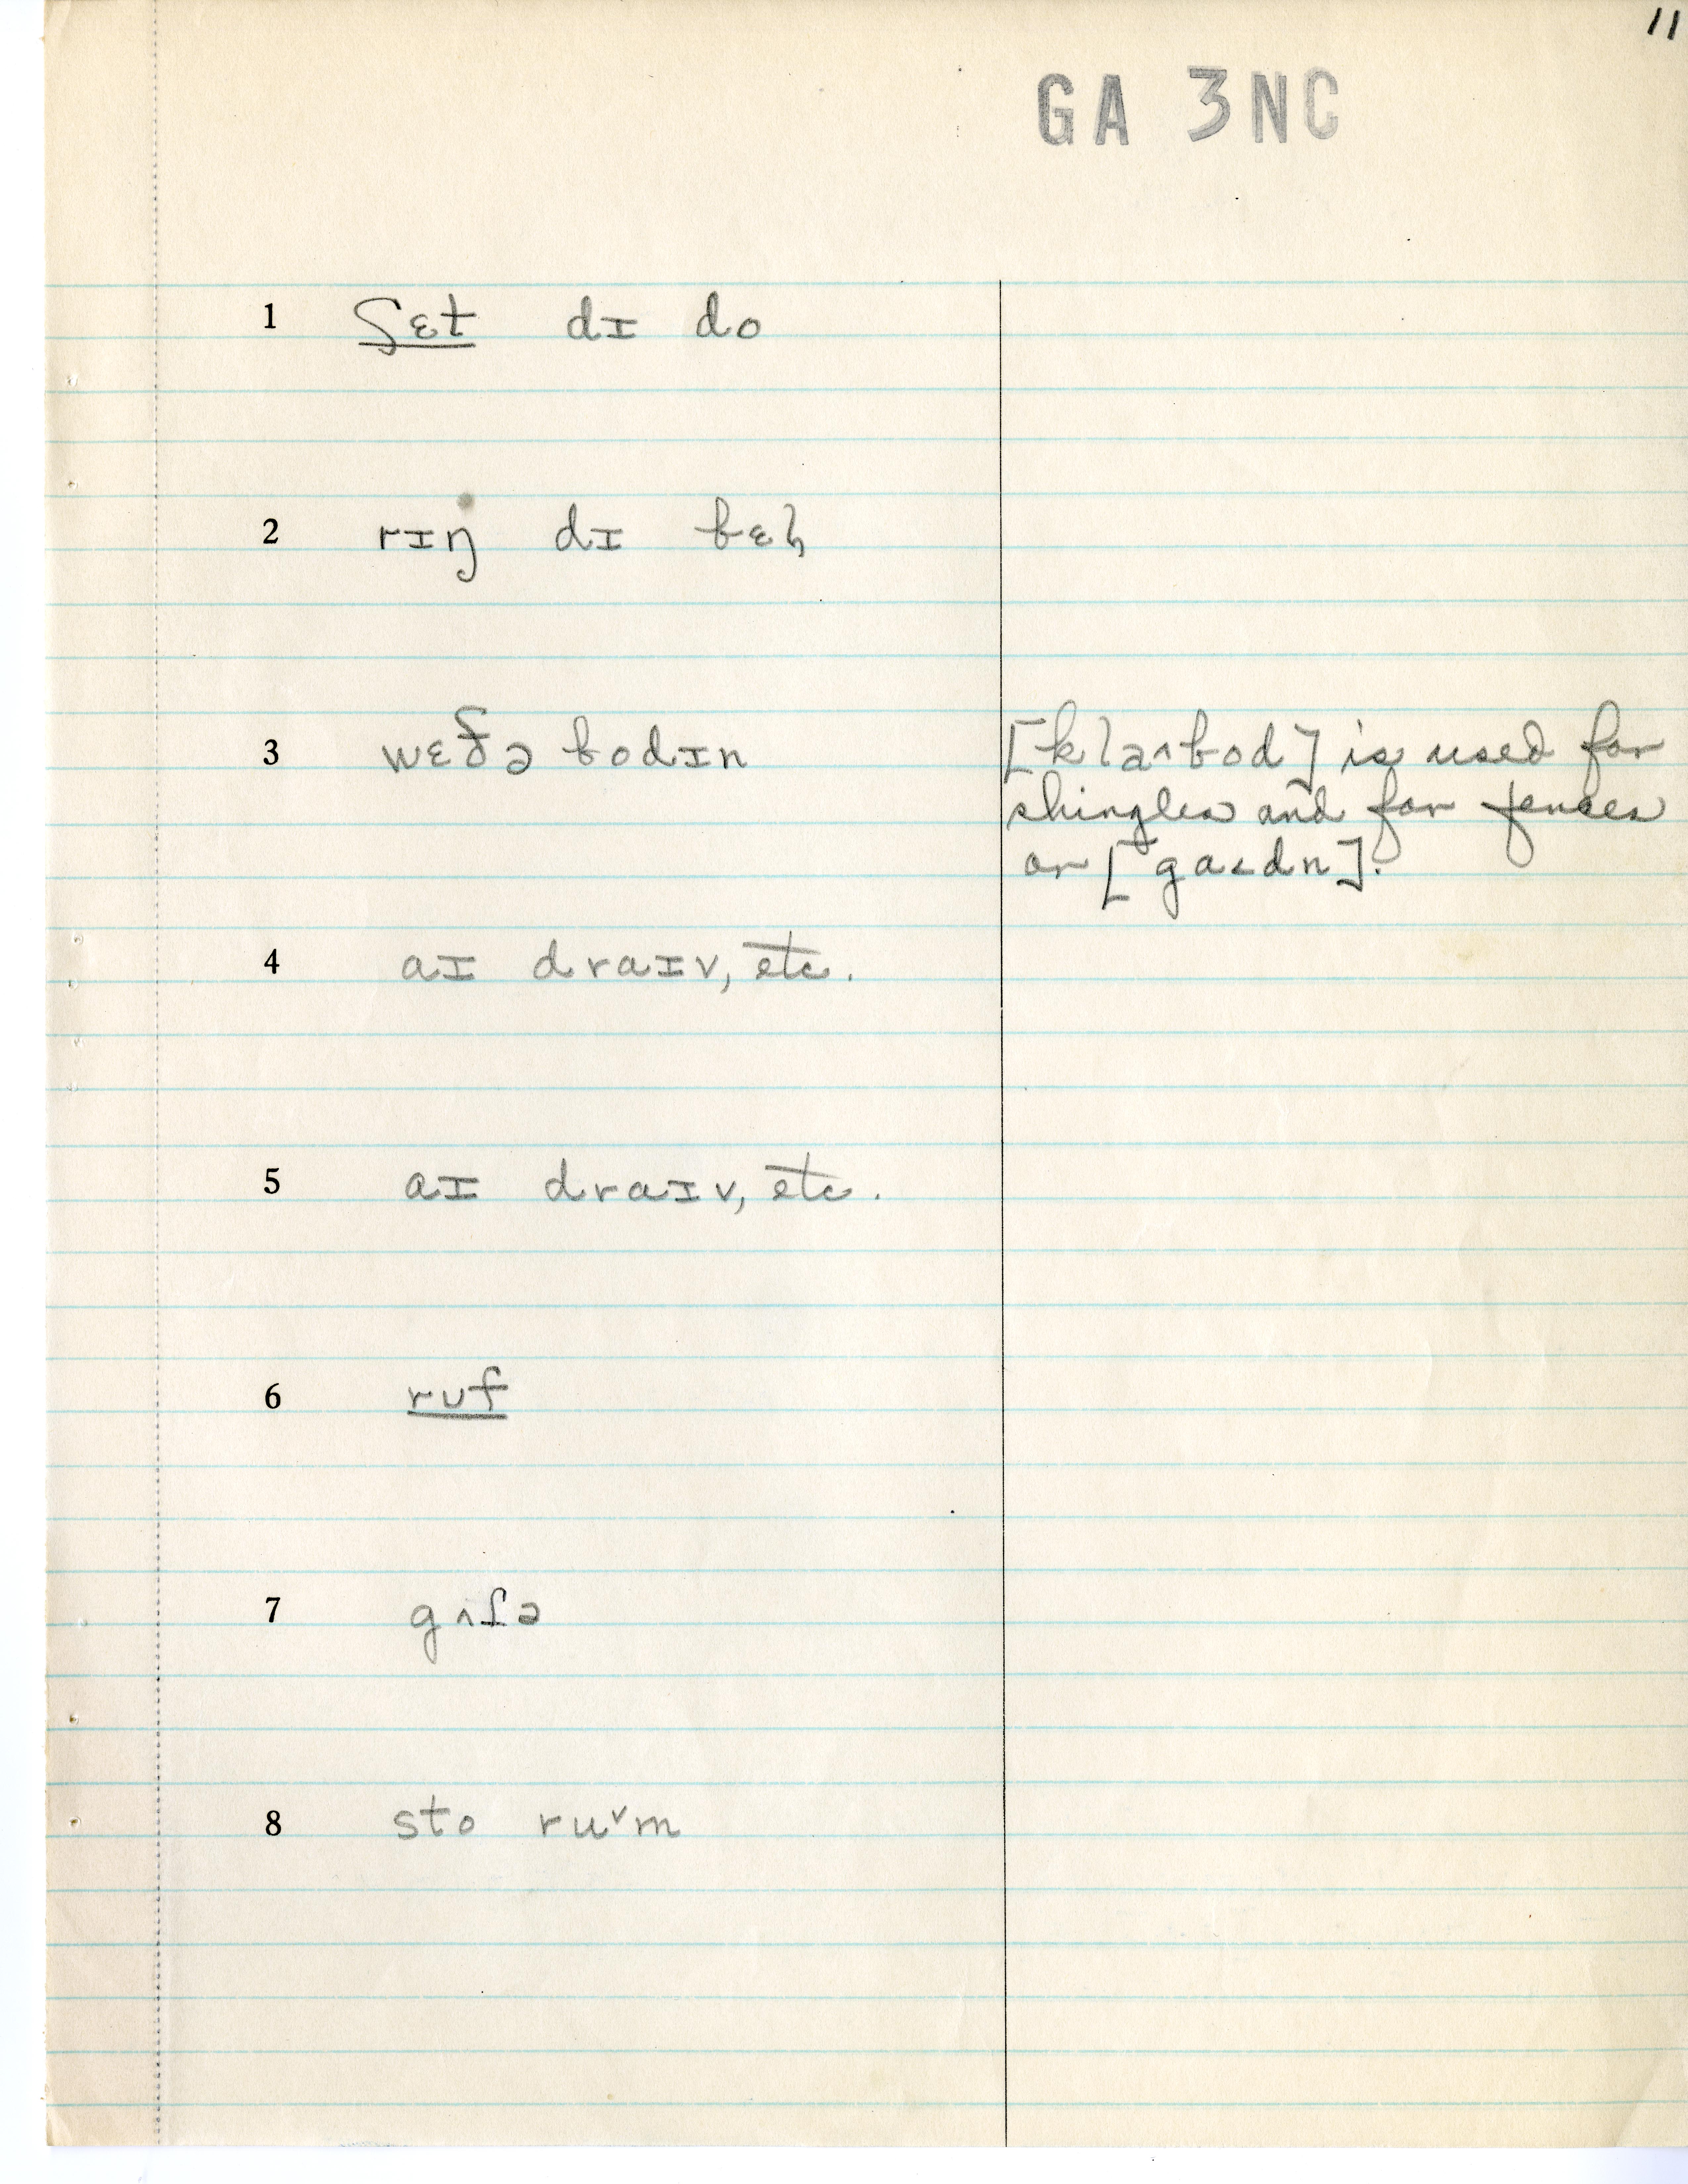 11
GA 3NC
1 ʃɛt dɪ do
2 rɪŋ dɪ bɛl̩
3 wɛðə bodɪn
[kla^bod] is used for
shingles and for fences
or [ga<dn].
4 aɪ draɪv, etc.
5 aɪ draɪv, etc.
6 ruf
7 gʌ
8 sto ruˇm